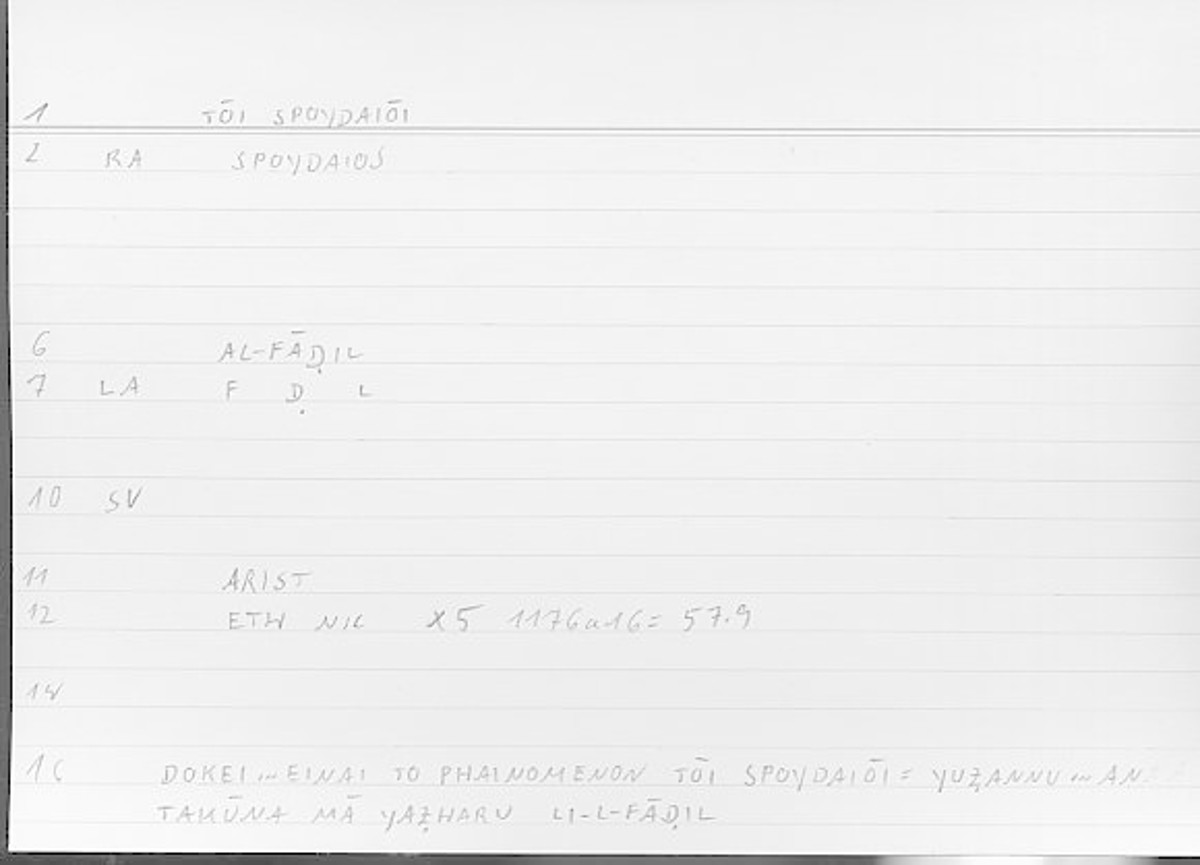 1 TŌI SPOYDAIŌI
2 RA SPOYDAIOS
6 AL-FĀḌIL
7 LA F Ḍ L
10 SV
11 ARIST
12 ETH NIK X5 1176a16= 57.9
14
16 DOKEI... EINAI TO PHAINOMENON TŌI SPOYDAIŌI = YUẒANNU... AN
TAKŪNA MĀ YAẒHARU LI-L-FĀḌIL